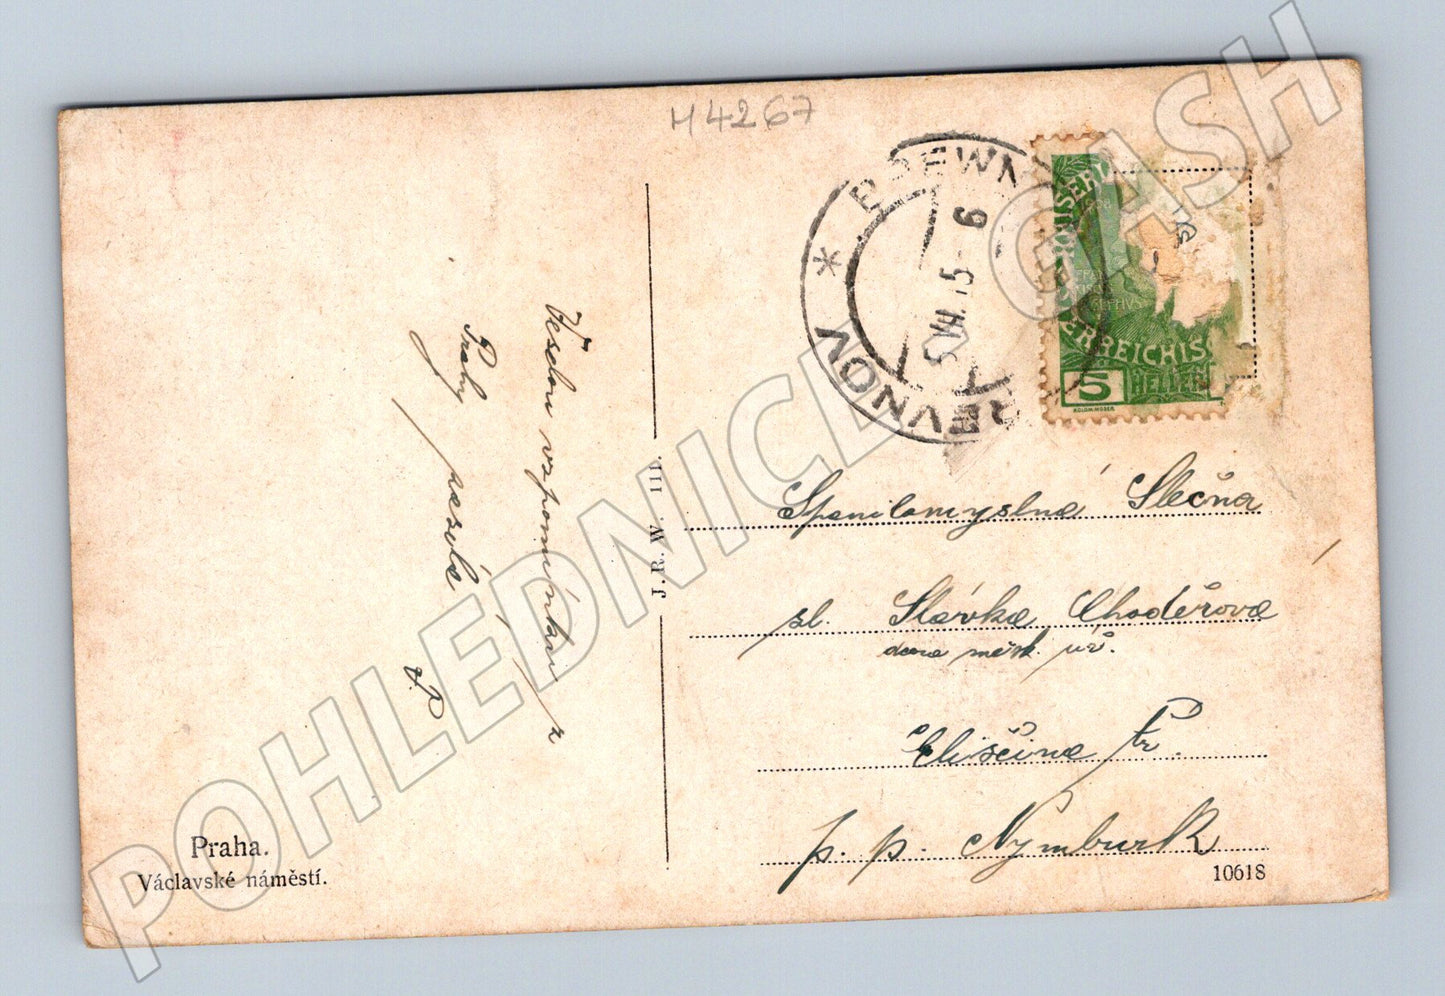 H4267
BŘEWNOV
5 VII. 15 - 6
BŘEVNOV *
5 HELLER
KOLOM. MOSER
Veselou vzpomínku z
Prahy zasílá
P.
J. R. W. III.
Spanilomyslná Slečna
sl. Slávka Choděrova
dcera měšk. úř.
Eliščina tř.
p. p. Nymburk
Praha.
Václavské náměstí.
10618
POHLEDNICE/GASH